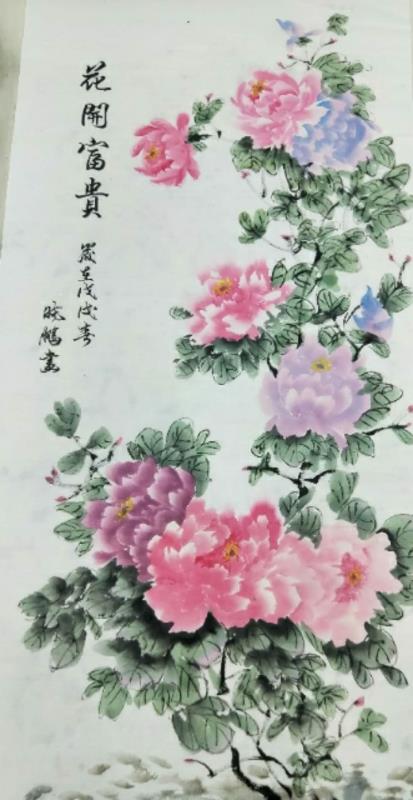 花開富貴
歲在戊戌春
曉鵬畫